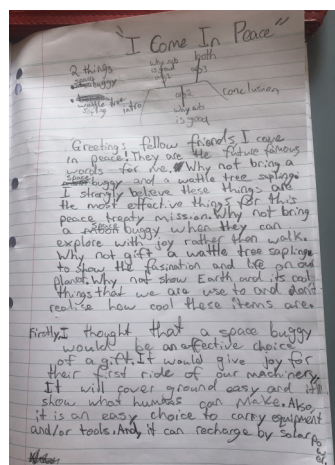 "I Come In Peace"
2 things
space buggy
wattle tree sapling
intro
why sb is good
op1
both
op3
op2
why wts is good
conclusion
Greetings fellow friends I come
in peace! They are the future famous
words for me. Why not bring a
space buggy and a wattle tree sapling.
I strongly believe these things are
the most effective things for this
peace treaty mission. Why not bring
a space buggy when they can
explore with joy rather than walk.
Why not gift a wattle tree sapling
to show the fasination and life on our
planet. Why not show Earth and its cool
things that we are use to and don't
realise how cool these items are.
Firstly, I thought that a space buggy
would be an affective choice
of a gift. It would give joy for
their first ride of our machinery.
It will cover ground easy and
show what humans can make. Also,
it is an easy choice to carry equipment
and/or tools. And, it can recharge by solar power.